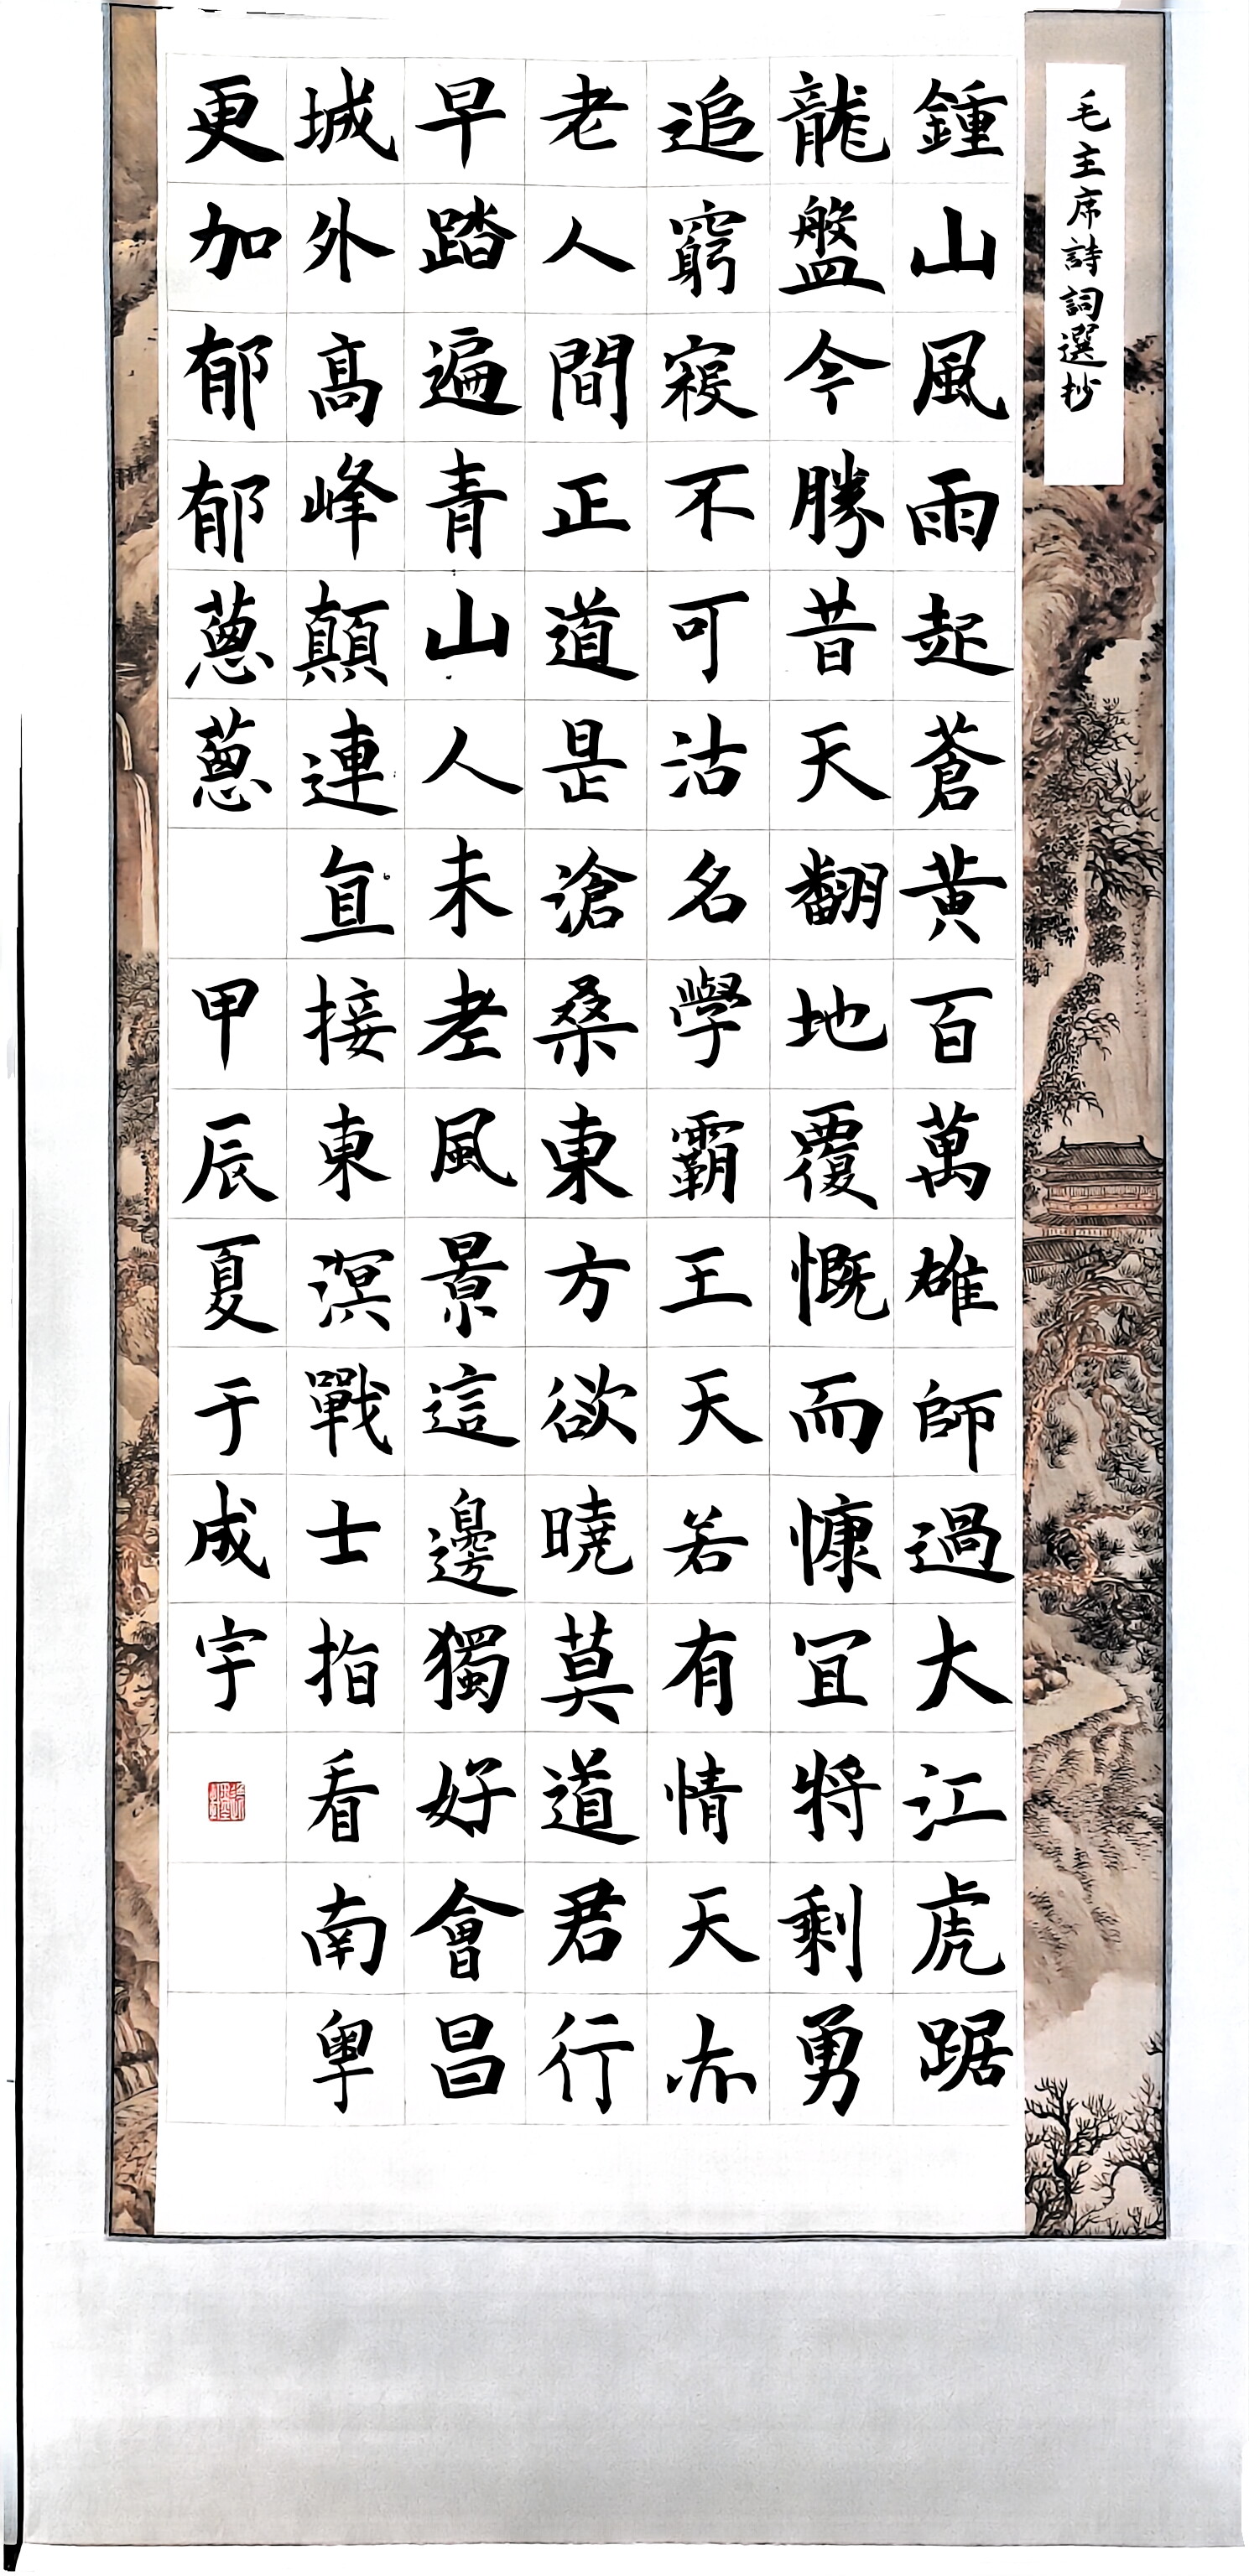 毛主席詩詞選抄
鍾山風雨起蒼黄百萬雄師過大江虎踞
龍盤今勝昔天翻地覆慨而慷宜将剩勇
追窮寇不可沽名學霸王天若有情天亦
老人間正道是滄桑東方欲曉莫道君行
早踏遍青山人未老風景這邊獨好會昌
城外高峰顛連直接東溟戰士指看南粤
更加郁郁蔥蔥 甲辰夏于成宇